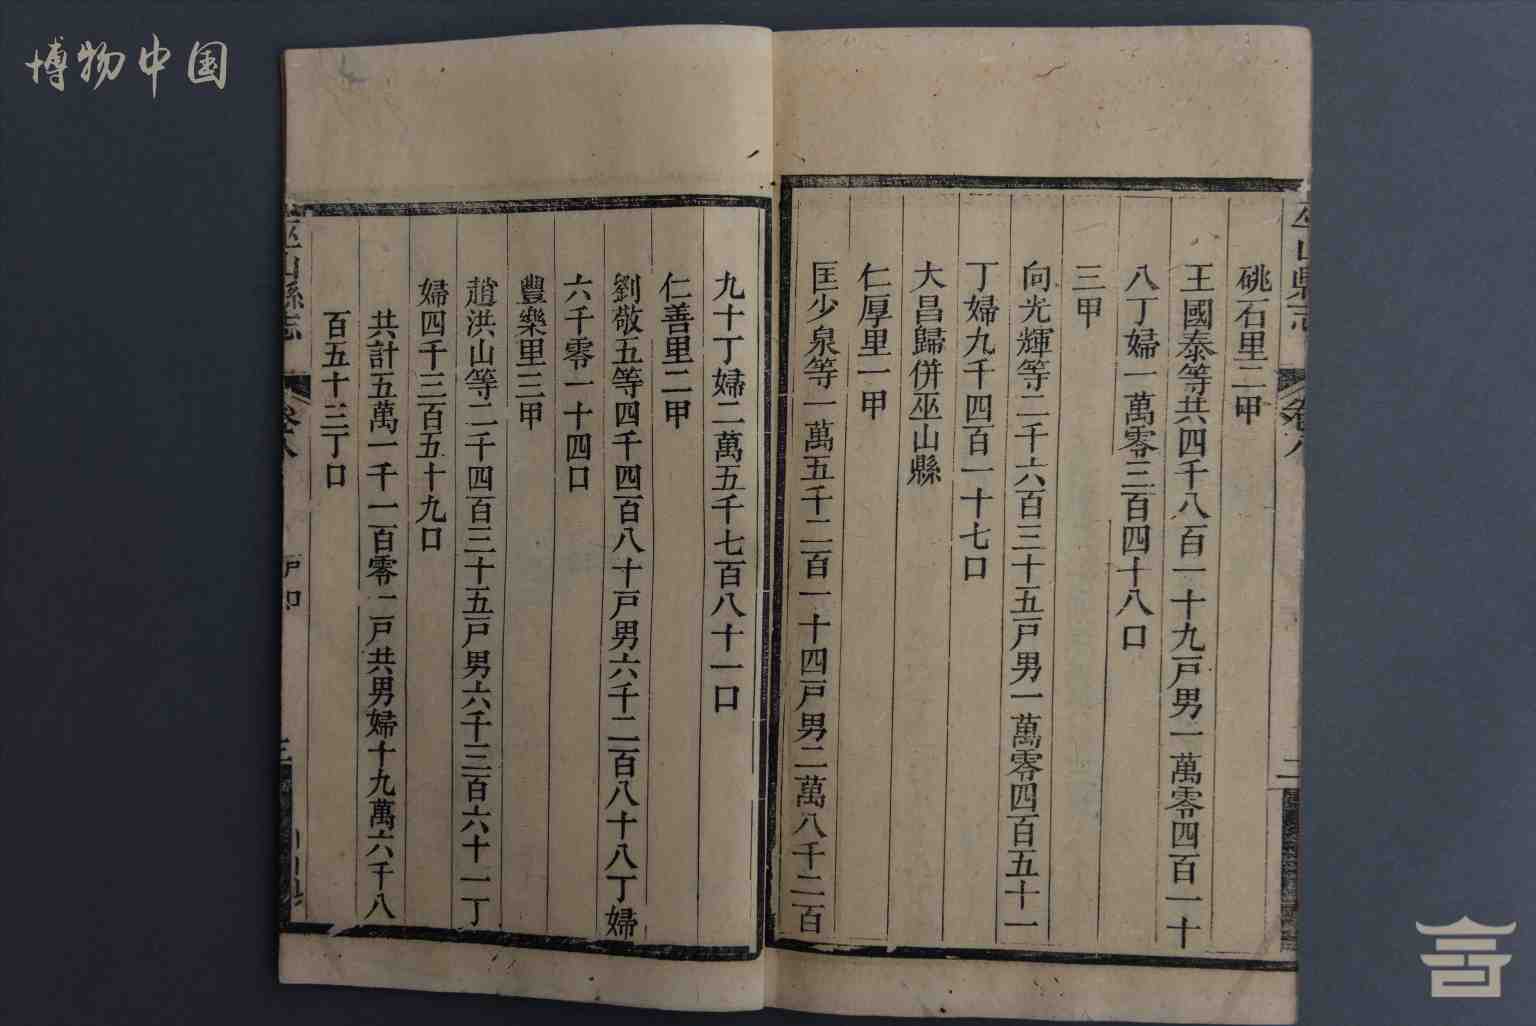 博物中国
巫山縣志
卷八
二
硗石里二甲
王國泰等共四千八百一十九戸男一萬零四百一十
八丁婦一萬零三百四十八口
三甲
向光輝等二千六百三十五戸男一萬零四百五十一
丁婦九千四百一十七口
大昌歸併巫山縣
仁厚里一甲
匡少泉等一萬五千二百一十四戸男二萬八千二百
九十丁婦二萬五千七百八十一口
仁善里二甲
劉敬五等四千四百八十戸男六千二百八十八丁婦
六千零一十四口
豐樂里三甲
趙洪山等二千四百三十五戸男六千三百六十一丁
婦四千三百五十九口
共計五萬一千一百零二戸共男婦十九萬六千八
百五十三丁口
巫山縣志
卷八
戸口
三